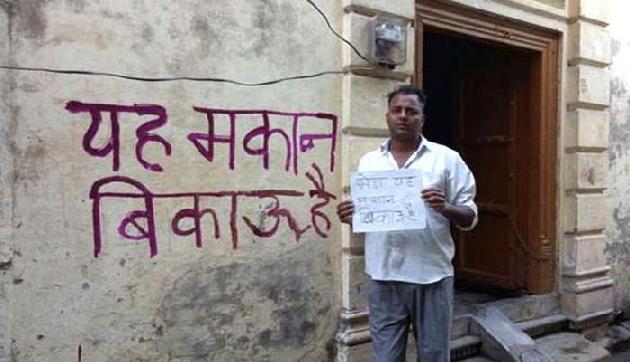 यह मकान
बिकाऊ है
मेरा यह
मकान
बिकाऊ है